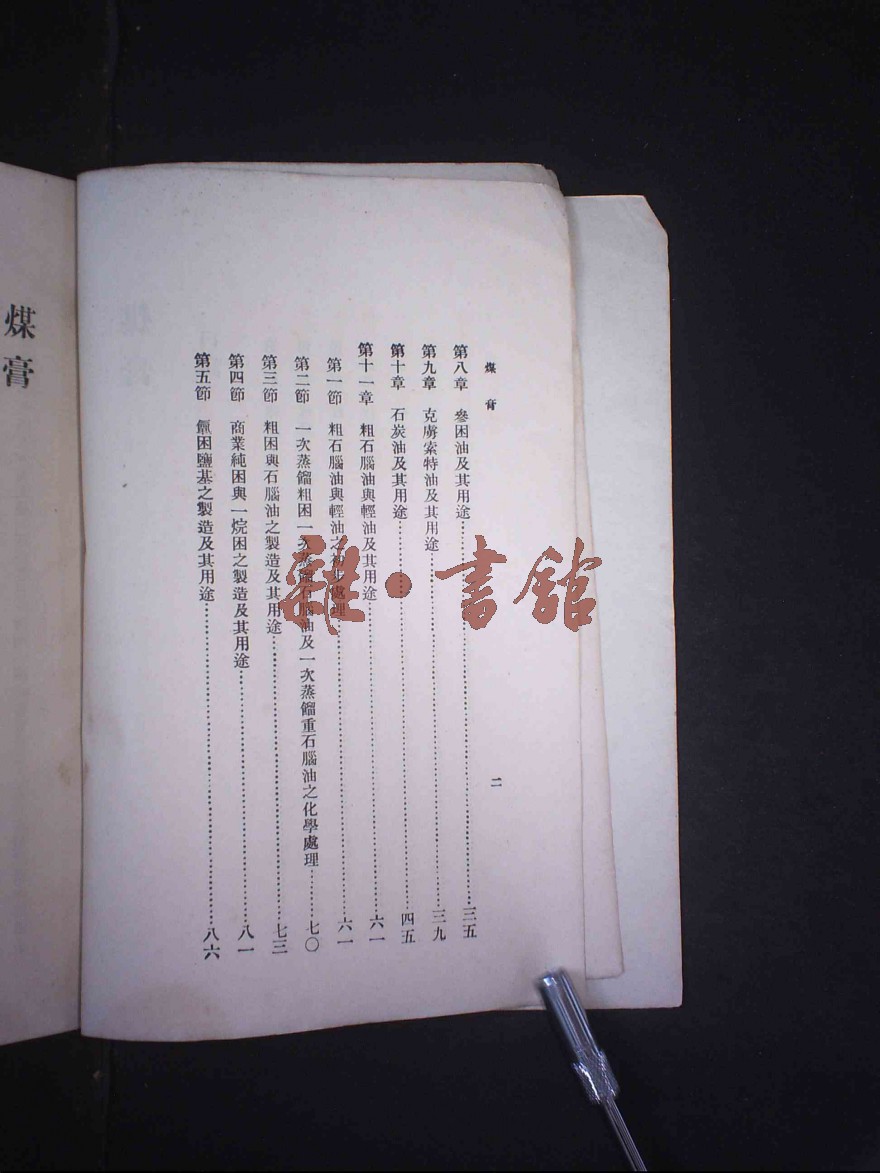 煤膏
二
第八章 參困油及其用途……三五
第九章 克虜索特油及其用途……三九
第十章 石炭油及其用途……四五
第十一章 粗石腦油與輕油及其用途……六一
第一節 粗石腦油與輕油之初步處理……六一
第二節 一次蒸餾粗困一次蒸餾石腦油及一次蒸餾重石腦油之化學處理……七〇
第三節 粗困與石腦油之製造及其用途……七三
第四節 商業純困與一烷困之製造及其用途……八一
第五節 困鹽基之製造及其用途……八六
煤膏
雜·書館